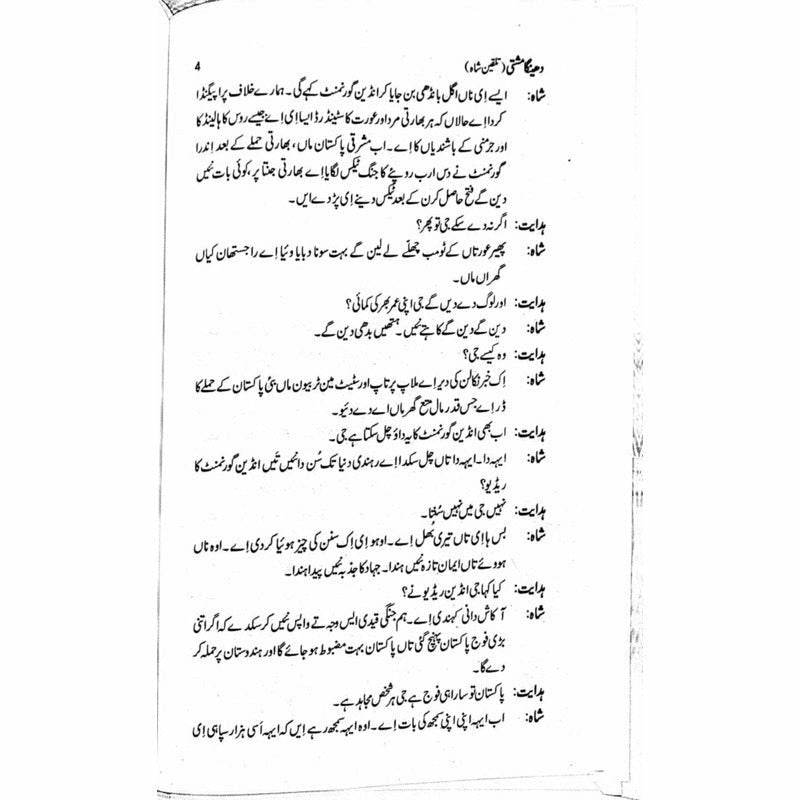 دھینگا مشتی (تلقین شاہ) 4
شاہ: ایسے اِی ناں اگل باندھی بن جایا کر انڈین گورنمنٹ کہے گی۔ ہمارے خلاف پراپیگنڈا
کردا اے حالاں کہ ہر بھارتی مرد اور عورت کا سٹینڈرڈ ایسا اِی اے جیسے روس کا ہالینڈ کا
اور جرمنی کے باشندیاں کا اے۔ اب مشرقی پاکستان ماں، بھارتی حملے کے بعد اِندرا
گورنمنٹ نے دس ارب روپے کا جنگ ٹیکس لگایا اے بھارتی جنتا پر، کوئی بات نئیں
دین گے فتح حاصل کرن کے بعد ٹیکس دینے اِی پڑدے ایں۔
ہدایت: اگر نہ دے سکے جی تو پھر؟
شاہ: پھیر عورتاں کے ٹومب چھلّے لے لین گے بہت سونا دبایا وئیا اے راجستھان کیاں
گھراں ماں۔
ہدایت: اور لوگ دے دیں گے جی اپنی عمر بھر کی کمائی؟
شاہ: دین گے دین گے کاہتے نئیں۔ ہتھیں بدھی دین گے۔
ہدایت: وہ کیسے جی؟
شاہ: اِک خبر نکالن کی دیر اے ملاپ پرتاپ اور سٹیٹ مین ٹربیون ماں بئی پاکستان کے حملے کا
ڈر اے جس قدر مال جمع گھر ماں اے دے دئیو۔
ہدایت: اب بھی انڈین گورنمنٹ کا یہ داؤ چل سکتا ہے جی۔
شاہ: ایہہ دا۔ ایہہ دا تاں چل سکدا اے رہندی دنیا تک سُن دا ئیں تَیں انڈین گورنمنٹ کا
ریڈیو؟
ہدایت: نہیں جی میں نہیں سُنتا۔
شاہ: بس ہا اِی تاں تیری بُھل اے۔ اوہو اِی اِک سنن کی چیز ہوئیا کردی اے۔ اوہ ناں
ہووئے تاں ایمان تازہ نئیں ہندا۔ جہاد کا جذبہ نئیں پیدا ہندا۔
ہدایت: کیا کہا جی انڈین ریڈیو نے؟
شاہ: آکاش وانی کہندی اے۔ ہم جنگی قیدی ایس وجہ تے واپس نئیں کر سکدے کہ اگر اتنی
بڑی فوج پاکستان پہنچ گئی تاں پاکستان بہت مضبوط ہو جائے گا اور ہندوستان پر حملہ کر
دے گا۔
ہدایت: پاکستان تو سارا ہی فوج ہے جی ہر شخص مجاہد ہے۔
شاہ: اب ایہہ اپنی اپنی سمجھ کی بات اے۔ اوہ ایہہ سمجھ رہے ایں کہ ایہہ اَسی ہزار سپاہی اِی